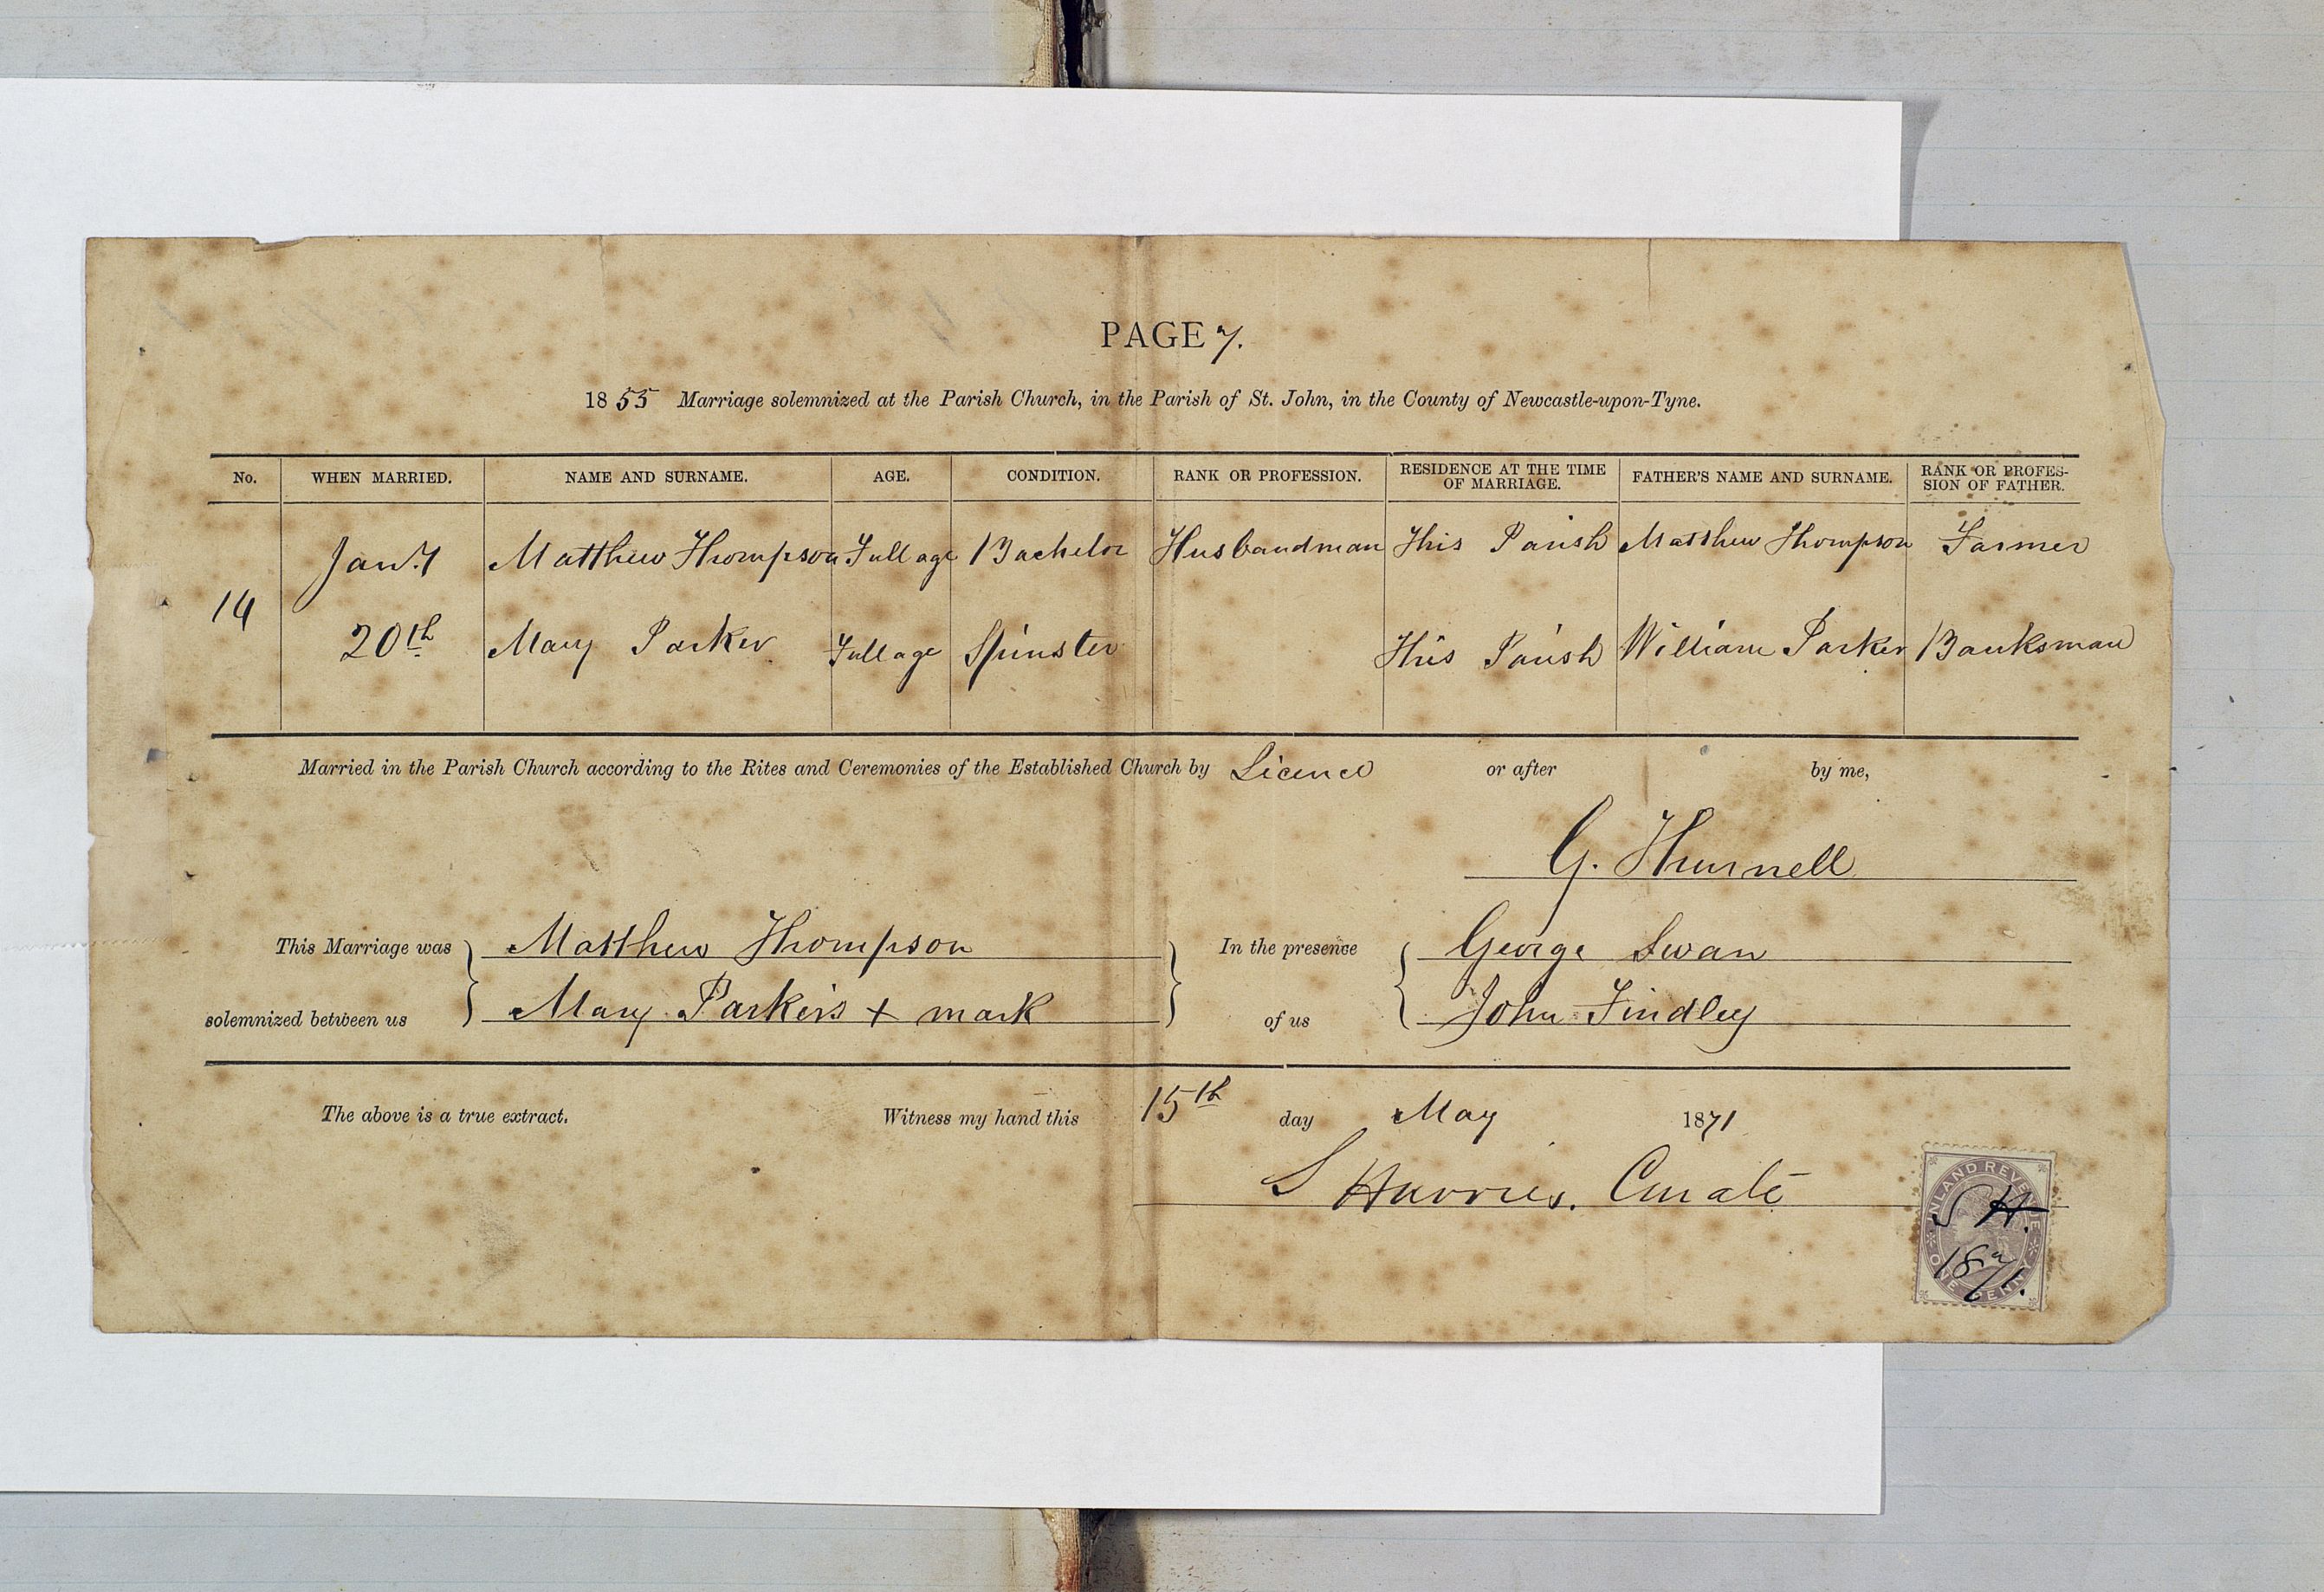 PAGE 7.
1855 Marriage solemnized at the Parish Church, in the Parish of St. John, in the County of Newcastle-upon-Tyne.
No. WHEN MARRIED. NAME AND SURNAME. AGE. CONDITION. RANK OR PROFESSION. RESIDENCE AT THE TIME OF MARRIAGE. FATHER'S NAME AND SURNAME. RANK OR PROFESSION OF FATHER.
Jan.y Matthew Thompson Full age Bachelor Husbandman This Parish Matthew Thompson Farmer
14
20th Mary Parker Full age Spinster This Parish William Parker Banksman
Married in the Parish Church according to the Rites and Ceremonies of the Established Church by Licence or after by me,
G. Hurnell
This Marriage was Matthew Thompson In the presence George Swan
solemnized between us Mary Parker's + mark of us John Findley
The above is a true extract. Witness my hand this 15th day May 1871
S Harries. Curate
INLAND REVENUE
S H.
1871.
ONE PENNY